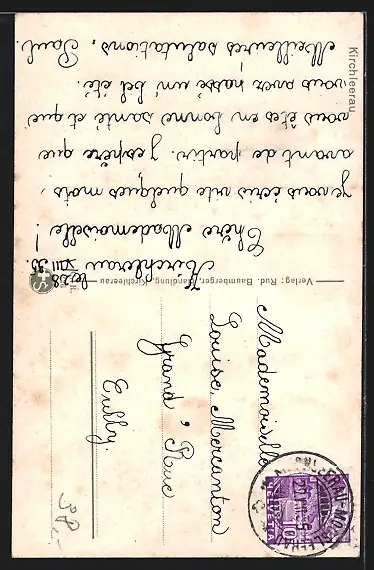 Kirchleerau
Kirchlerau le 28 VIII 35.
Chère Mademoiselle!
Je vous écris vite quelques mots,
avant de partir. J'espère que
vous êtes en bonne santé et que
vous avez passé un bel été.
Meilleures salutations. Paul.
Verlag: Rud. Baumberger, Handlung, Kirchleerau
Mademoiselle
Louise, Mercanton
Grand' Rue
Cully.
HELVETIA
10
38.-